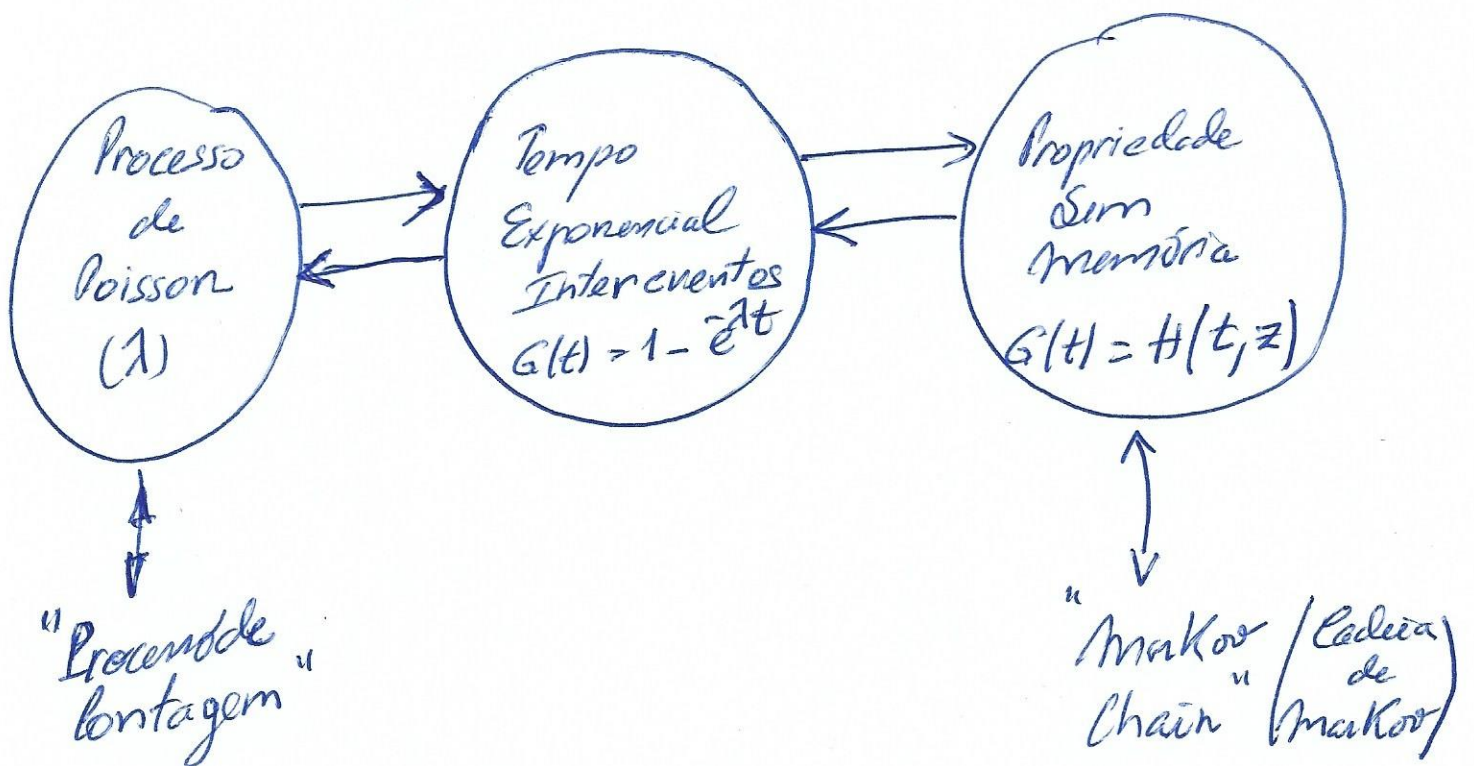 Processo
de
Poisson
(λ)
Tempo
Exponencial
Intereventos
G(t) = 1 - e^-λt
Propriedade
Sem
Memória
G(t) = H(t, z)
"Processo de
Contagem"
"Markov
Chain"
(Cadeia
de
Markov)